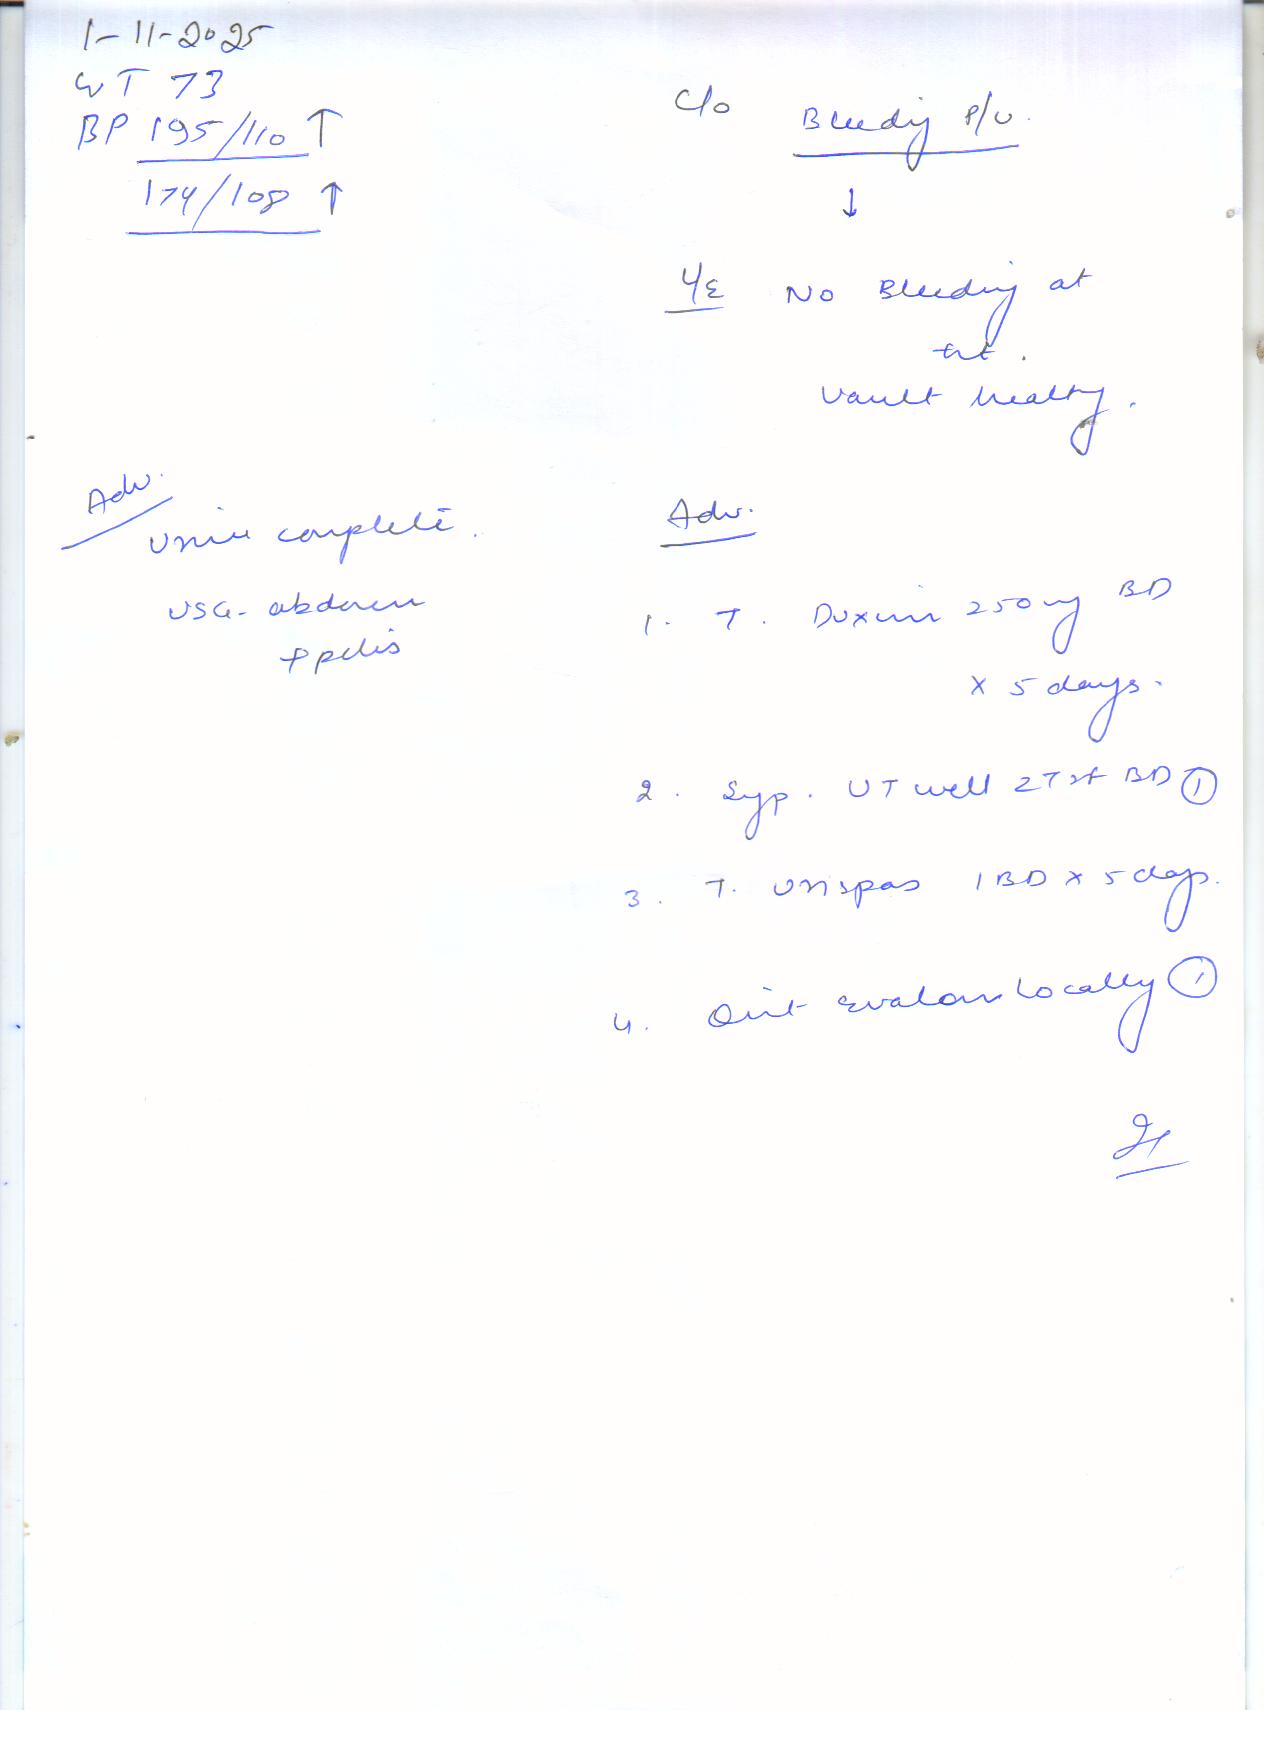 1-11-2025
WT 73
BP 195/110 ↑
174/108 ↑
C/o Bleeding P/V.
↓
No Bleeding at
vault healthy.
Adv.
Urine complete.
USG- abdomen
+ pelvis
Adv.
1. T. 250mg BD
x 5 days.
2. Syp. UT well 2T sf BD ①
3. T. Urispas 1 BD x 5 days.
4. Oint Evalon Locally ①